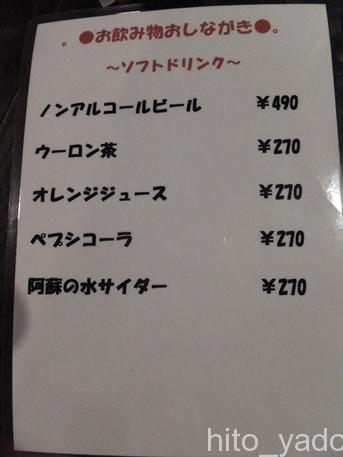 。●お飲み物おしながき●。
～ソフトドリンク～
ノンアルコールビール ￥490
ウーロン茶 ￥270
オレンジジュース ￥270
ペプシコーラ ￥270
阿蘇の水サイダー ￥270
hito_yado